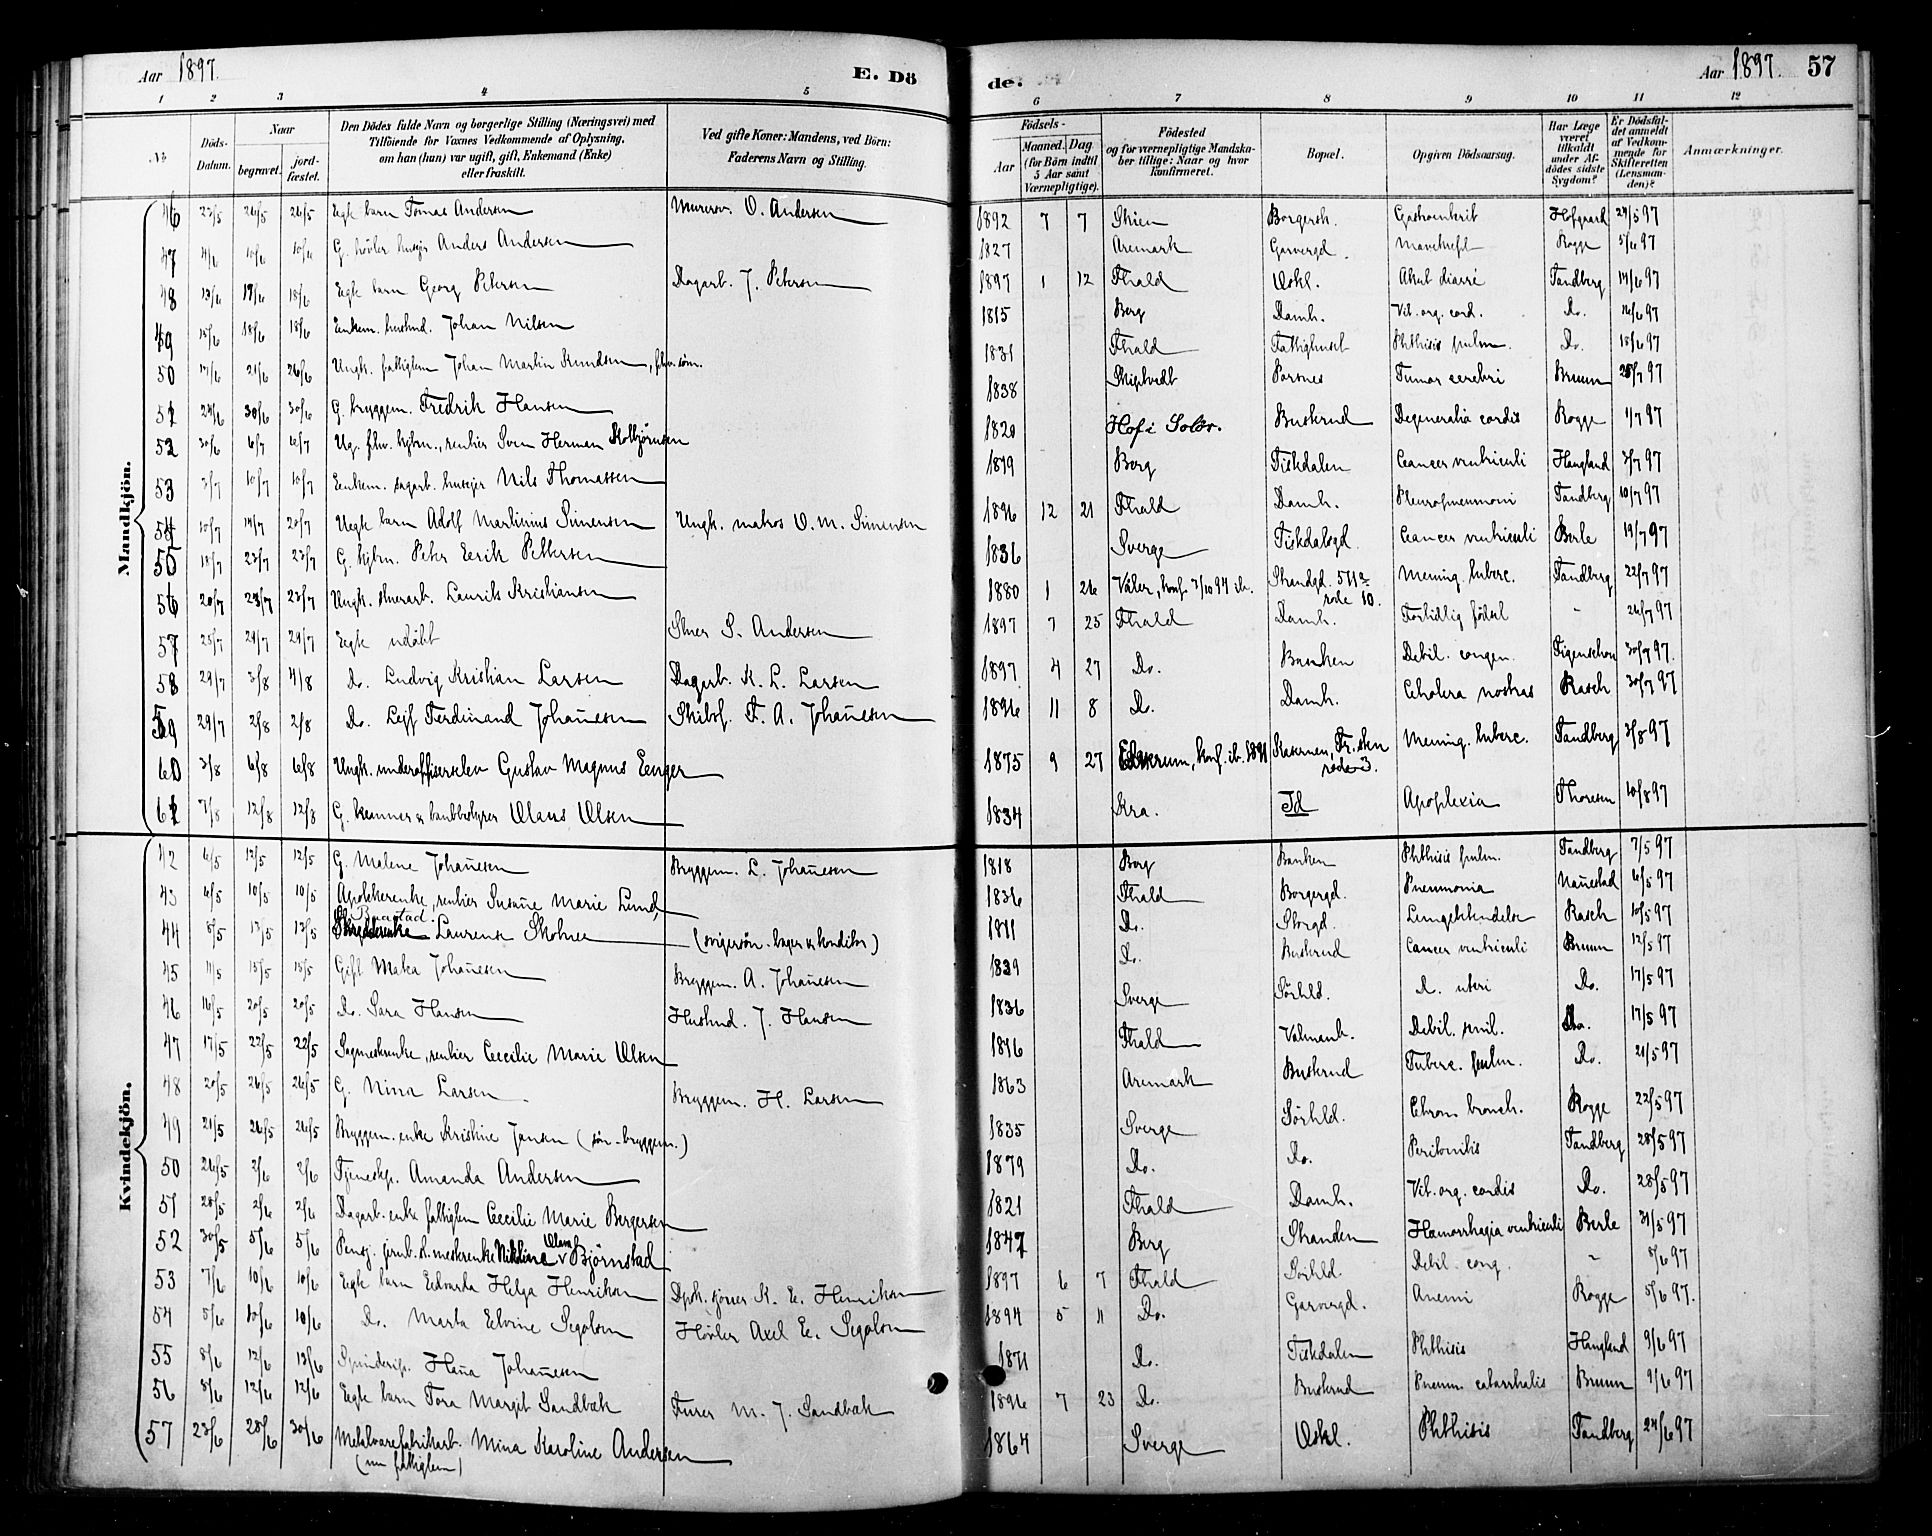 Aar 1897.
E. Dö
de.
Aar 1897. 57
1 2 3 4 5 6 7 8 9 10 11 12
No
Döds-Datum.
Naar
begravet.
jord-fæstet.
Den Dödes fulde Navn og borgerlige Stilling (Næringsvei) med
Tilföiende for Voxnes Vedkommende af Oplysning,
om han (hun) var ugift, gift, Enkemand (Enke)
eller fraskilt.
Ved gifte Koner: Mandens, ved Börn:
Faderens Navn og Stilling.
Födsels-
Aar
Maaned. Dag.
(for Börn indtil
5 Aar samt
Værnepligtige).
Födested
og for værnepligtige Mandska-
ber tillige: Naar og hvor
konfirmeret.
Bopæl.
Opgiven Dödsaarsag.
Har Læge
været
tilkaldt
under Af-
dödes sidste
Sygdom?
Er Dödsfal-
det anmeldt
af Vedkom-
mende for
Skifteretten
(Lensman-
den)?
Anmærkninger.
Mandkjön.
46 23/5 26/5 26/5 Egte barn Tomas Andersen Murersv. O. Andersen 1892 7 7 Skien Borgersk. Gastroenterit Hofgaard 24/5 97
47 4/6 10/6 10/6 G. høvler husejer Anders Andersen 1827 Aremark Garvergd. Mavekræft Rogge 5/6 97
48 13/6 17/6 18/6 Egte barn Georg Petersen Dagarb. J. Petersen 1897 1 12 Fhald Oskl. Akut diarré Tandberg 14/6 97
49 15/6 18/6 18/6 Enkem. husmd. Johan Nilsen 1815 Berg Damh. Vit. org. cord. Do. 16/6 97
50 17/6 21/6 26/6 Ungk. fattiglem Johan Martin Knudsen, fhv. søm. 1831 Fhald Fattighuset Phthisis pulm. Do. 18/6 97
51 24/6 30/6 30/6 G. bryggem. Fredrik Hansen 1838 Skiptvedt Porsnes Tumor cerebri Bruun 97
52 30/6 6/7 6/7 Ug. fhv. kjbm., rentier Sven Herman Kolbjørnsen 1820 Hof i Solør. Buskrud Degeneratio cordis Rogge 1/7 97
53 3/7 10/7 10/7 Enkem. sagarb. husejer Nils Thomassen 1819 Berg Tistedalen Cancer ventriculi Haugland 3/7 97
54 10/7 14/7 20/7 Uegte barn Adolf Martinius Simensen Ungk. matros O. M. Simensen 1896 12 21 Fhald Damh. Pleuropneumoni Tandberg 10/7 97
55 18/7 23/7 23/7 G. kjbm. Peter Eerik Pettersen 1836 Sverge Tistedalsgd. Cancer ventriculi Berle 19/7 97
56 20/7 23/7 23/7 Ungk. stuerarb. Laurits Kristiansen 1880 1 26 Våler, konf. 7/10 94 ib. Strandgd. 511a rode 10. Mening. tuberc. Tandberg 22/7 97
57 25/7 29/7 29/7 Egte udøbt Stuer S. Andersen 1897 7 25 Fhald Damh. Fortidlig fødsel " 26/7 97
58 29/7 3/8 4/8 Do. Ludvig Kristian Larsen Dagarb. K. L. Larsen 1897 4 27 Do. Banken Debil. congen. Figenschou 30/7 97.
59 29/7 2/8 2/8 Do. Leif Ferdinand Johan̄esen Skibsf. F. A. Johan̄esen 1896 11 8 Do. Damh. Cholera nostras Rasch 30/7 97
60 3/8 6/8 6/8 Ungk. underoffiserselev Gustav Magnus Eenger 1875 9 27 Elverum, konf. ib. 1891 Kasernen, Fr.sten rode 3. Mening. tuberc. Tandberg 3/8 97
61 7/8 12/8 12/8 G. kæmner & bankbestyrer Olaus Olsen 1834 Kra. Td Apoplexia Thoresen 10/8 97
Kvindekjön.
42 6/5 12/5 12/5 G. Malene Johan̄esen Bryggem. L. Johan̄esen 1818 Berg Banken Phthisis pulm. Tandberg 7/5 97
43 6/5 10/5 10/5 Apothekerenke, rentier Susan̄e Marie Lund, 1836 Fhald Borgergd. Pneumonia Nan̄estad 6/5 97
44 8/5 13/5 13/5 Laurense Skolmer (svigersøn - bager & konditor) 1811 Do. Storgd. Lungebetændelse Rasch 10/5 97
45 11/5 15/5 15/5 Gift Matea Johan̄esen Bryggem. A. Johan̄esen 1839 Do. Buskrud Cancer ventriculi Bruun 12/5 97
46 16/5 20/5 20/5 Do. Sara Hansen Husmd. J. Hansen 1836 Sverge Sørhld. D. uteri Do. 17/5 97
47 17/5 22/5 22/5 Sagmesterenke, rentier Cecilie Marie Olsen 1816 Fhald Valmanh. Debil. senil. Do. 17/5 97
48 20/5 26/5 26/5 G. Nina Larsen Bryggem. H. Larsen 1863 Aremark Buskrud Tuberc. pulm. Do. 21/5 97
49 21/5 26/5 26/5 Bryggem. enke Kristine Jansen (søn - bryggem.) 1835 Sverge Sørhld. Chron. bronch. Rogge 22/5 97
50 26/5 2/6 2/6 Tjenestep. Amanda Andersen 1879 Do. Do. Peritonitis Tandberg 28/5 97
51 28/5 2/6 2/6 Dagarb. enke fattiglem Cecilie Marie Bergersen 1821 Fhald Damh. Vit. org. cordis Do. 28/5 97
52 30/5 5/6 5/6 Pensj. jernb.st.mesterenke Nikoline Bjørnstad 1847 Berg Stranden Hæmorrhagia ventriculi Berle 31/5 97
53 7/6 10/6 10/6 Egte barn Edvarda Helga Henriksen K. E. Henriksen 1897 6 7 Fhald Sørhld. Debil. cong. " 8/6 97
54 5/6 10/6 10/6 Do. Marta Elvine Segolson Høvler Axel E. Segolson 1894 5 11 Do. Garvergd. Anemi Rogge 5/6 97.
55 8/6 12/6 13/6 Spinderip. Han̄a Johan̄esen 1871 Do. Tistedalen Phthisis Haugland 9/6 97
56 8/6 12/6 12/6 Egte barn Tora Margit Sandbæk Furer M. J. Sandbæk 1896 7 23 Do. Buskrud Pneum. catarrhalis Bruun 9/6 97
57 23/6 28/6 30/6 Metalvarefabrikarb. Mina Karoline Andersen 1864 Sverge Oskl. Phthisis Tandberg 24/6 97
(nu fattiglem)